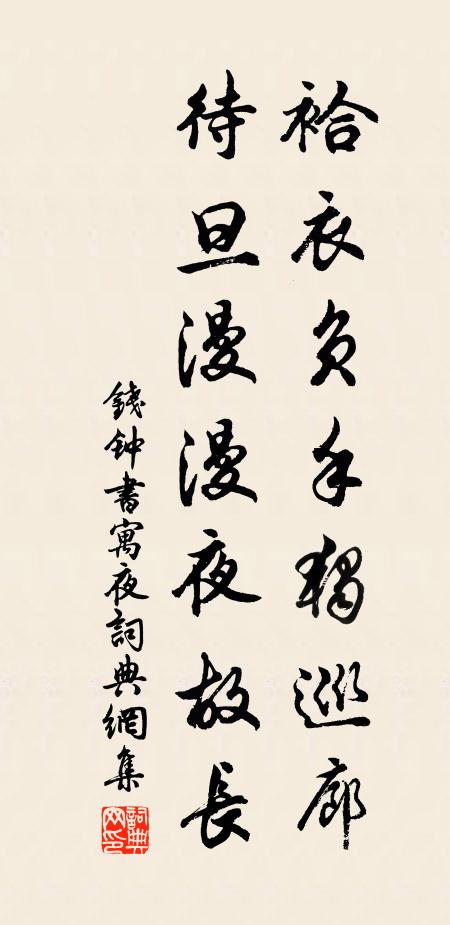 袷衣負手獨巡廊
待旦漫漫夜故長
錢钟書寓夜詞典網集
詞典网印